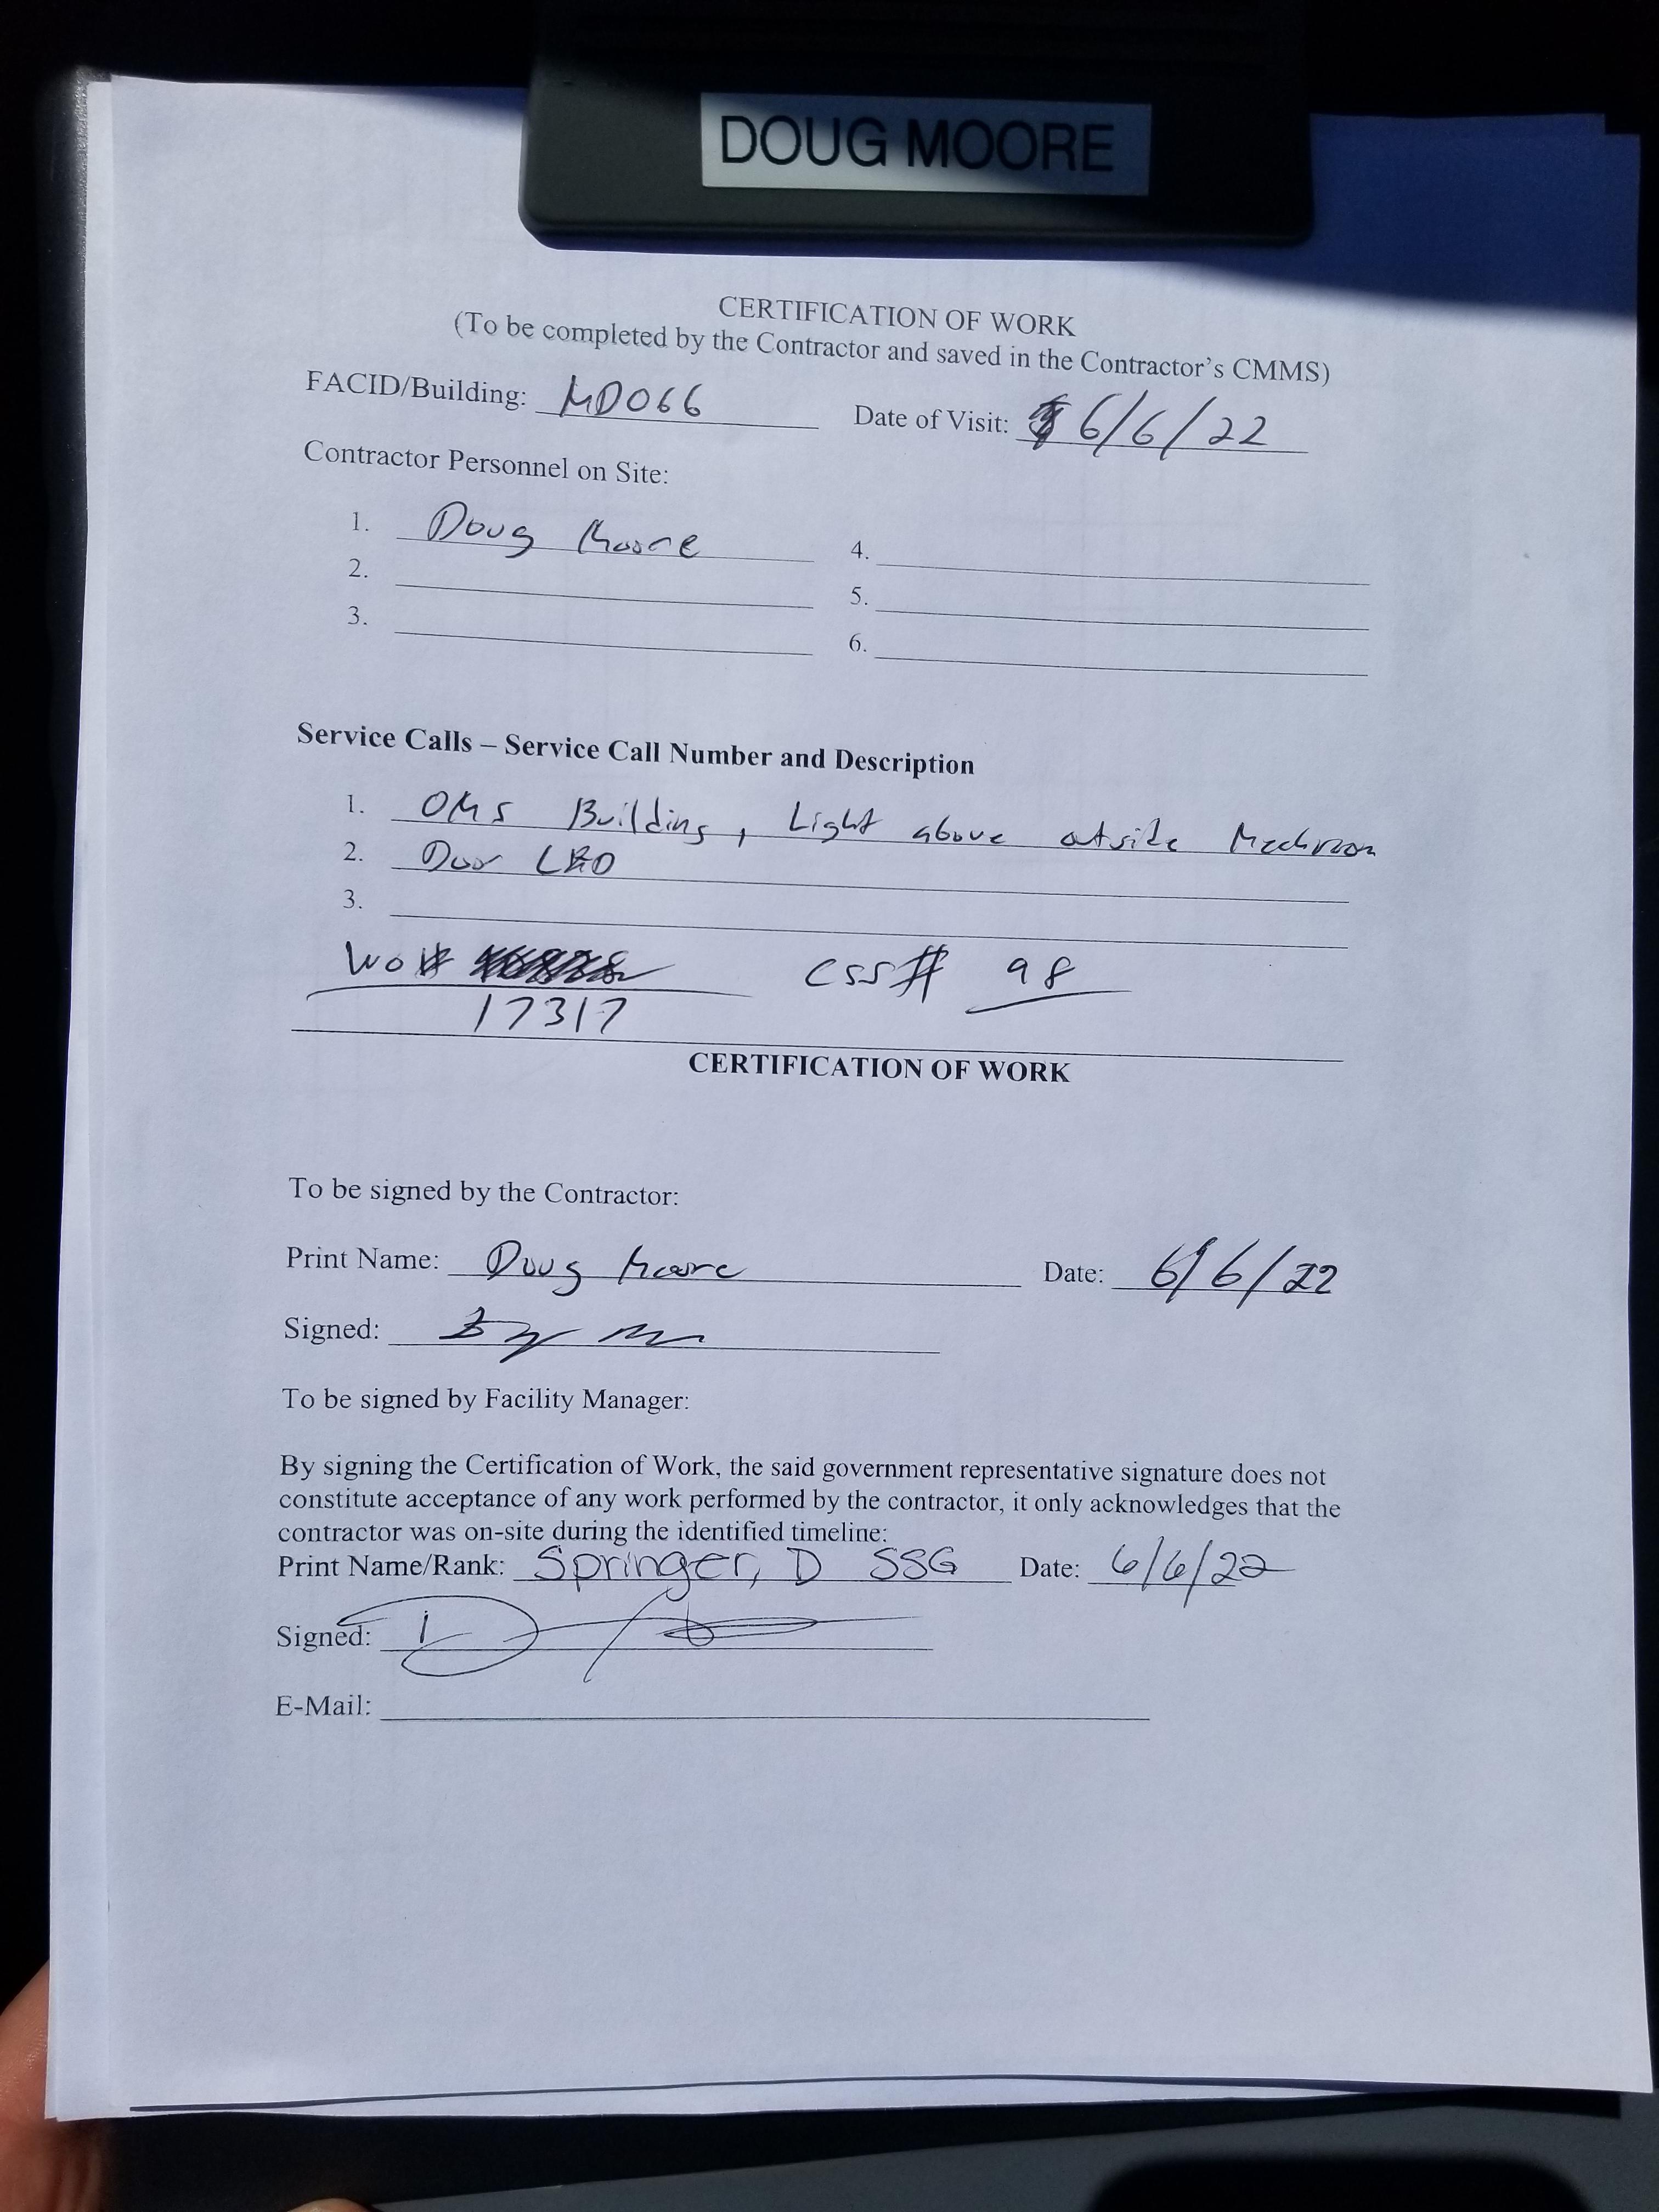 DOUG MOORE
CERTIFICATION OF WORK
(To be completed by the Contractor and saved in the Contractor's CMMS)
FACID/Building: MD066 Date of Visit: 6/6/22
Contractor Personnel on Site:
1. Doug Moore 4.
2. 5.
3. 6.
Service Calls – Service Call Number and Description
1. OMS Building, Light above outside Mechroom
2. Door
3.
WO# CSS# 98
17317
CERTIFICATION OF WORK
To be signed by the Contractor:
Print Name: Doug Moore Date: 6/6/22
Signed:
To be signed by Facility Manager:
By signing the Certification of Work, the said government representative signature does not
constitute acceptance of any work performed by the contractor, it only acknowledges that the
contractor was on-site during the identified timeline:
Print Name/Rank: Springer, D SSG Date: 6/6/22
Signed:
E-Mail: